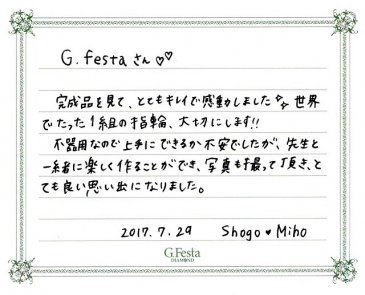 G.festa さん♡♡
完成品を見て、とてもキレイで感動しました✧ 世界
でたった1組の指輪、大切にします!!
不器用なので上手にできるか不安でしたが、先生と
一緒に楽しく作ることができ、写真も撮って頂き、と
ても良い思い出になりました。
2017.7.29 Shogo ♥ Miho
G.Festa
DIAMOND